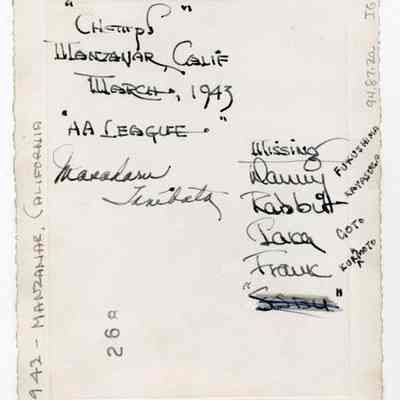 "CHAMPS"
MANZANAR, CALIF
MARCH, 1943
"AA LEAGUE."
Masaharu
Tanibata
Missing
Danny FUKUSHIMA
Rabbit
Paka GOTO
Frank KURIMOTO
942 - MANZANAR, CALIFORNIA
26a
94.87.20